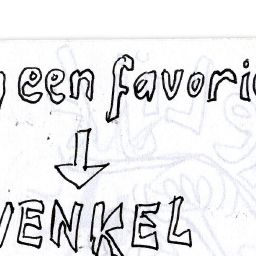 een favori
ENKEL